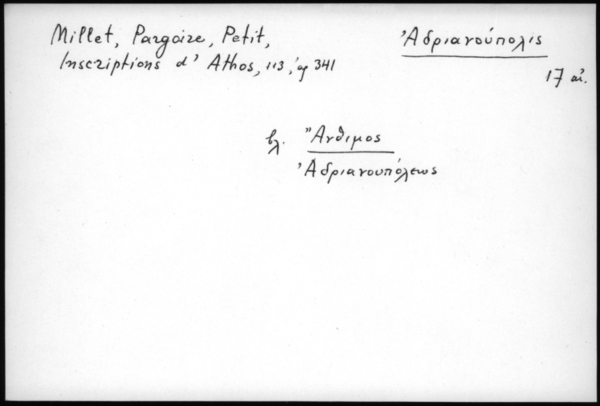 Millet, Pargoire, Petit,
Inscriptions d' Athos, 113, ἀρ 341
Ἀδριανούπολις
17 αἰ.
βλ. Ἄνθιμος
Ἀδριανουπόλεως